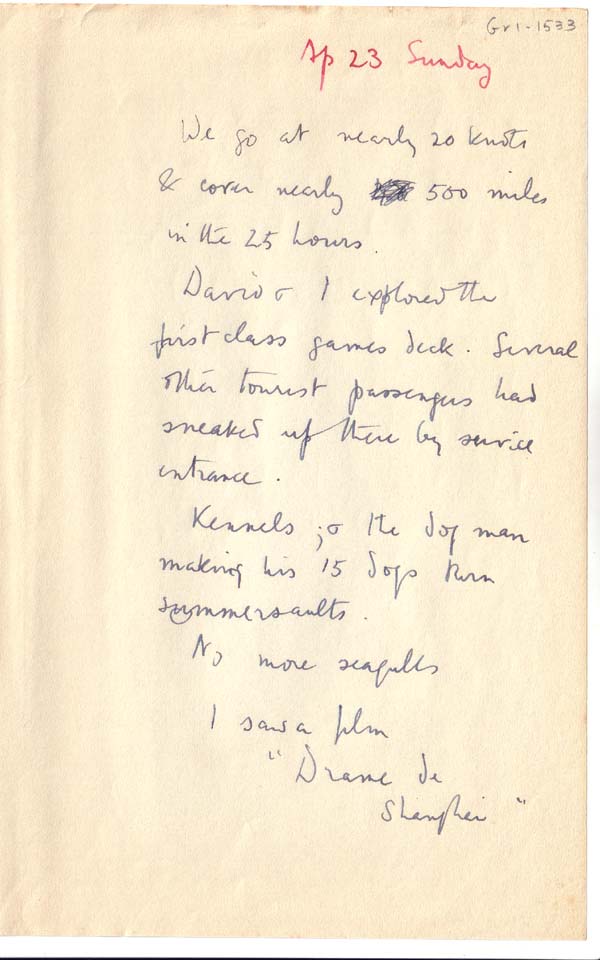 Gr1-1533
Ap 23 Sunday
We go at nearly 20 knots
& cover nearly 500 miles
in the 25 hours.
David & I explored the
first class games deck. Several
other tourist passengers had
sneaked up there by service
entrance.
Kennels ; & the dog man
making his 15 dogs turn
summersaults.
No more seagulls
I saw a film
"Drame de
Shanghai"